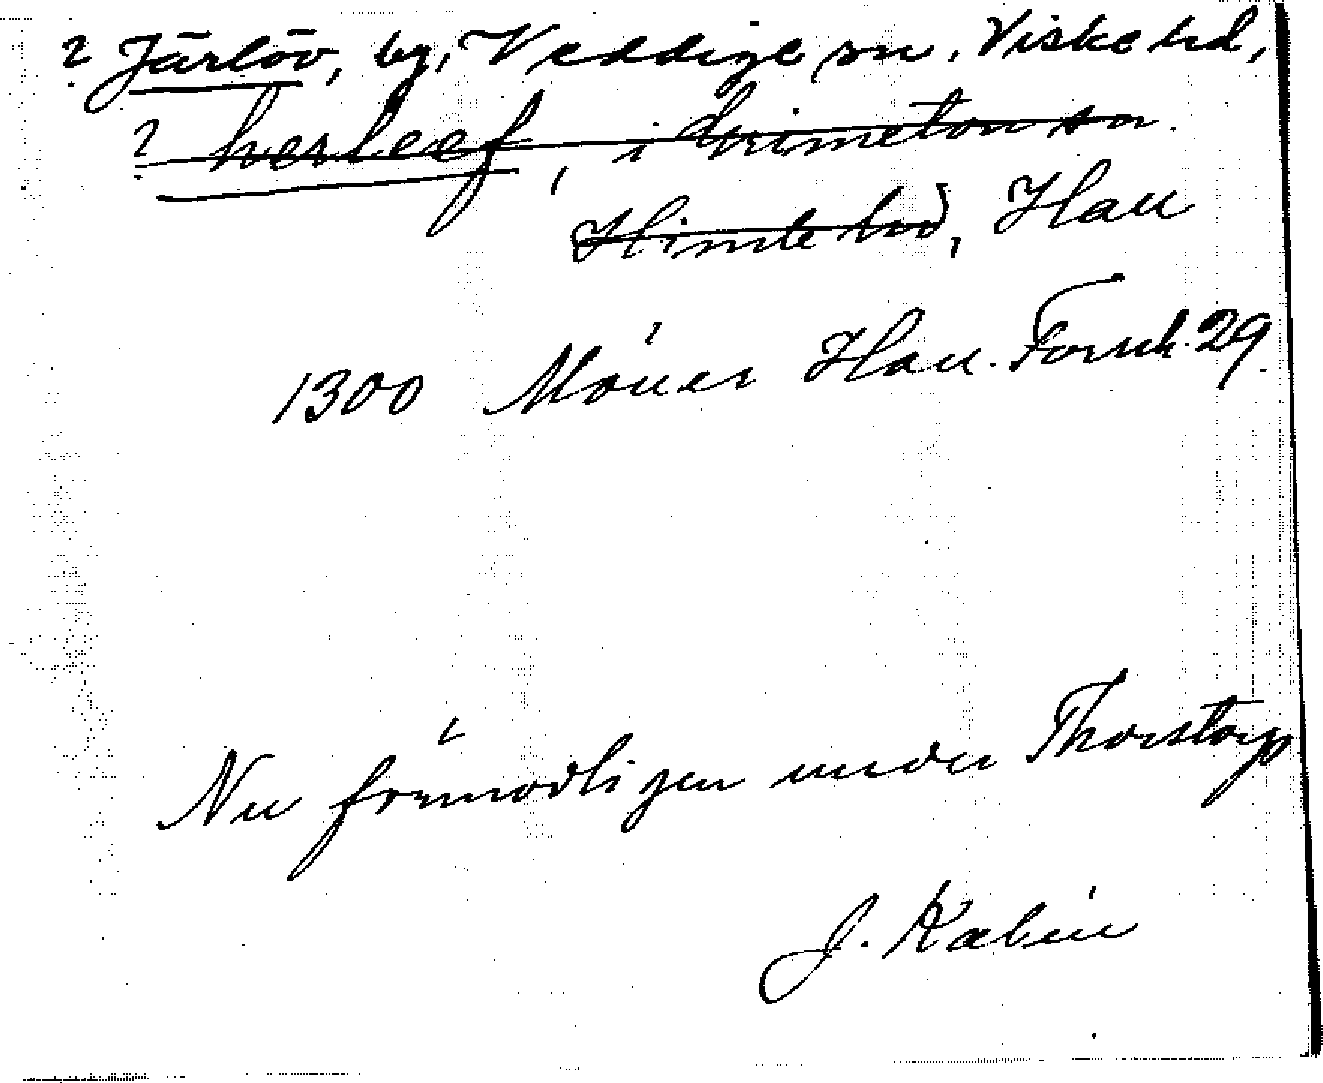 ? Järlöv, by, Veddige sn. Viske hd,
? herleef, i Grimeton sn.
Himle hd, Hall
1300 Möller Hall. Forsk. 29.
Nu förmodligen under Thorstorp
J. Kalén